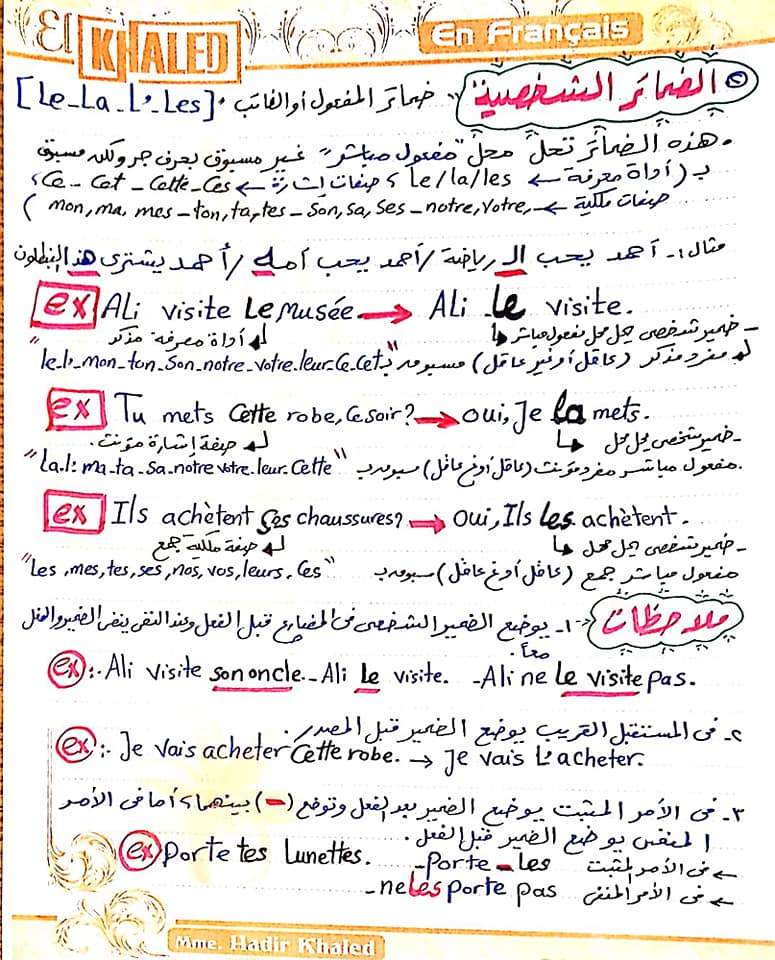 El KHALED
En Français
② الضمائر الشخصية
"ضمائر المفعول أو الغائب" [Le - La - L' - Les]
. هذه الضمائر تحل محل "مفعول مباشر" غير مسبوق بحرف جر ولكنه مسبوق
بـ (أداة معرفة ← le/la/les ، صفات إشارة ← Ce - Cet - Cette - Ces ،
صفات ملكية ← mon, ma, mes - ton, ta, tes - Son, sa, Ses - notre, votre, )
مثال :- أحمد يحب الـ رياضة / أحمد يحب أمه / أحمد يشترى هذا البنطلون
ex Ali visite Le Musée. → Ali le visite.
↲ أداة معرفة مذكر
- ضمير شخصى يحل محل مفعول مباشر
↲ مفرد مذكر (عاقل أو غير عاقل) مسبوق بـ "le.l'. mon.ton.Son.notre.votre.leur.Ce.Cet"
ex Tu mets Cette robe, Ce soir? → oui, Je la mets.
↲ صفة إشارة مؤنث.
- ضمير شخصى يحل محل
مفعول مباشر مفرد مؤنث (عاقل أو غ عاقل) مسبوق بـ "La.l'. ma-ta-Sa.notre.votre.leur.Cette"
ex Ils achètent Ses chaussures? → Oui, Ils les achètent.
↲ صفة ملكية جمع
- ضمير شخصى يحل محل
مفعول مباشر جمع (عاقل أو غ عاقل) مسبوق بـ "Les, mes, tes, ses, nos, vos, leurs, Ces"
ملاحظات ١- يوضع الضمير الشخصى فى المضارع قبل الفعل وعند النفى ينفى الضمير والفعل
معاً.
ex :- Ali visite son oncle. - Ali le visite. - Ali ne le visite pas.
٢- فى المستقبل القريب يوضع الضمير قبل المصدر.
ex :- Je vais acheter Cette robe. → Je vais L'acheter.
٣- فى الأمر المثبت يوضع الضمير بعد الفعل وتوضع (-) بينهما، أما فى الأمر
المنفى يوضع الضمير قبل الفعل.
ex Porte tes Lunettes. - Porte - les ← فى الأمر المثبت
- ne les porte pas ← فى الأمر المنفى
Mme. Hadir Khaled